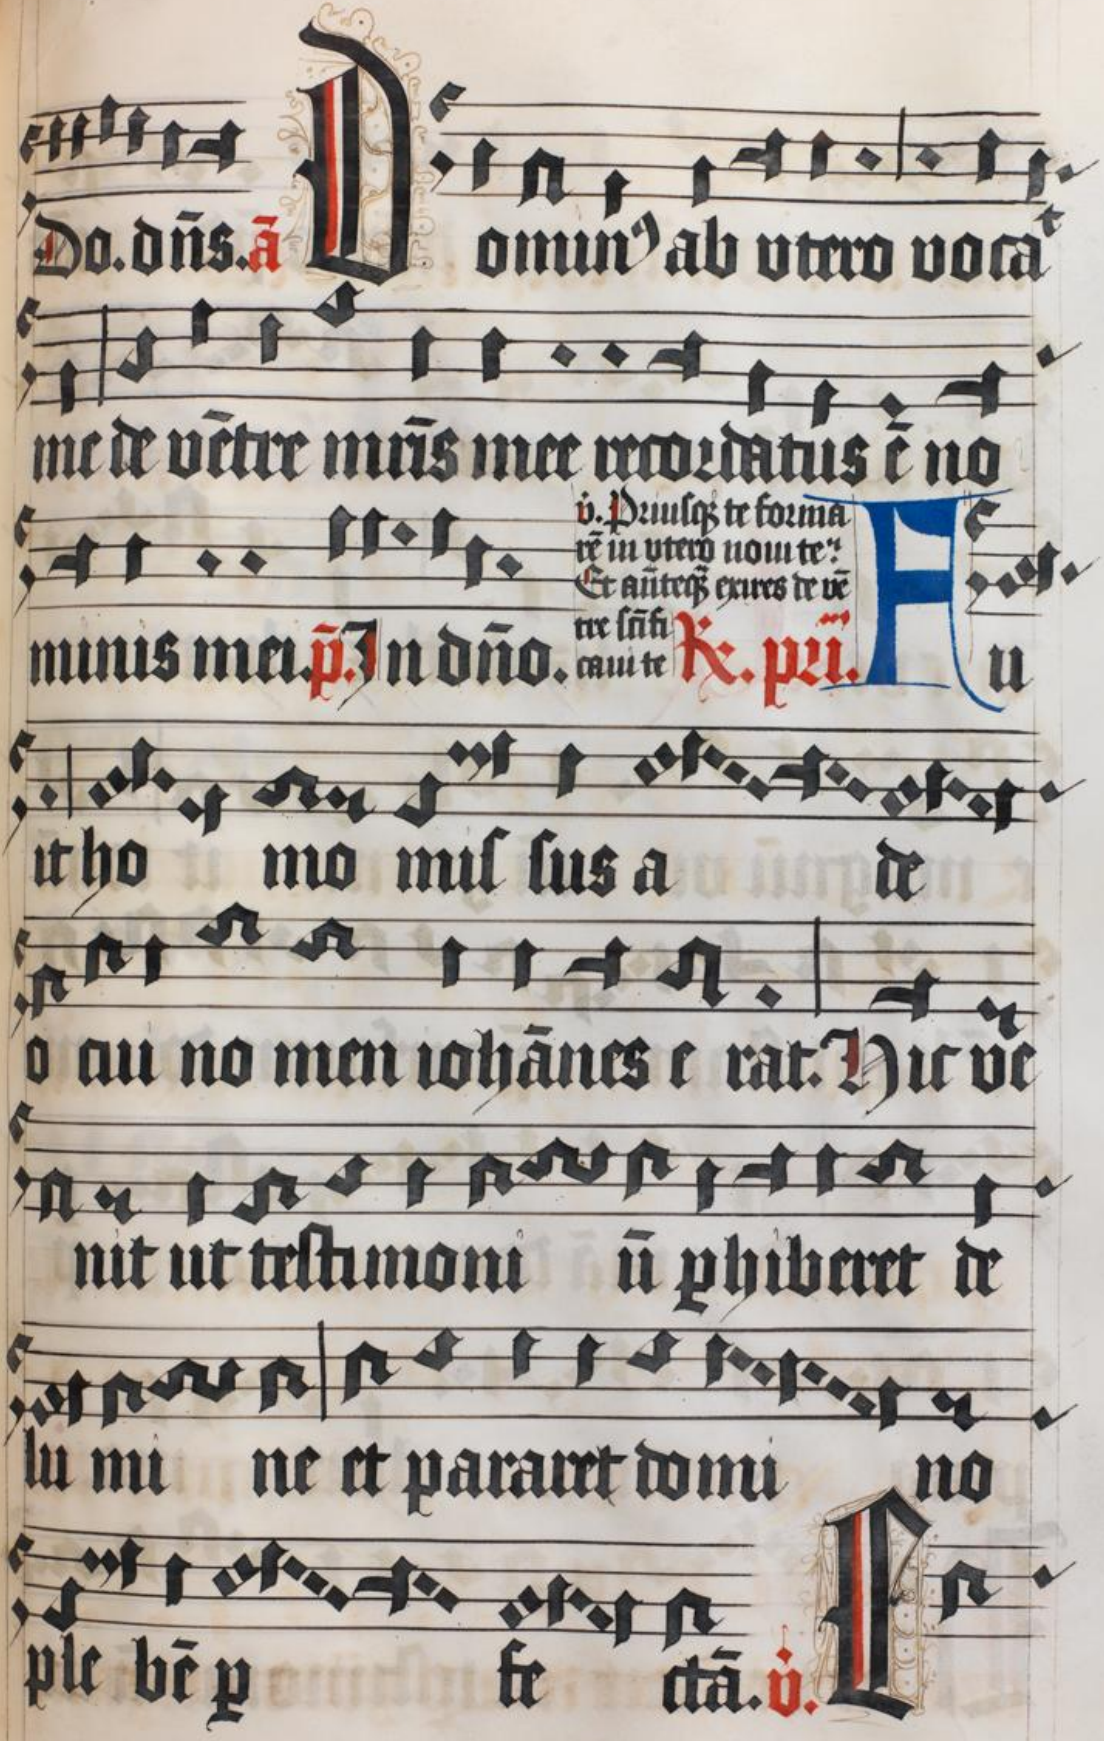 Do. dn̄s. ā Dominꝰ ab utero vocaᵗ
me de vētre mr̄is mee recordatus ē no
minis mei. p̄. In dn̄o.
v̇. Priusqꝫ te forma
rē in utero noui te:
Et an̄teqꝫ exires de vē
tre sc̄ifi
caui te
R. pri. Fu
it ho mo mis sus a de
o cui no men iohānes e rat. Hic ve
nit ut testimoni ū ꝑhiberet de
lu mi ne et pararet domi no
ple bē ꝑ fe ctā. v̇. E